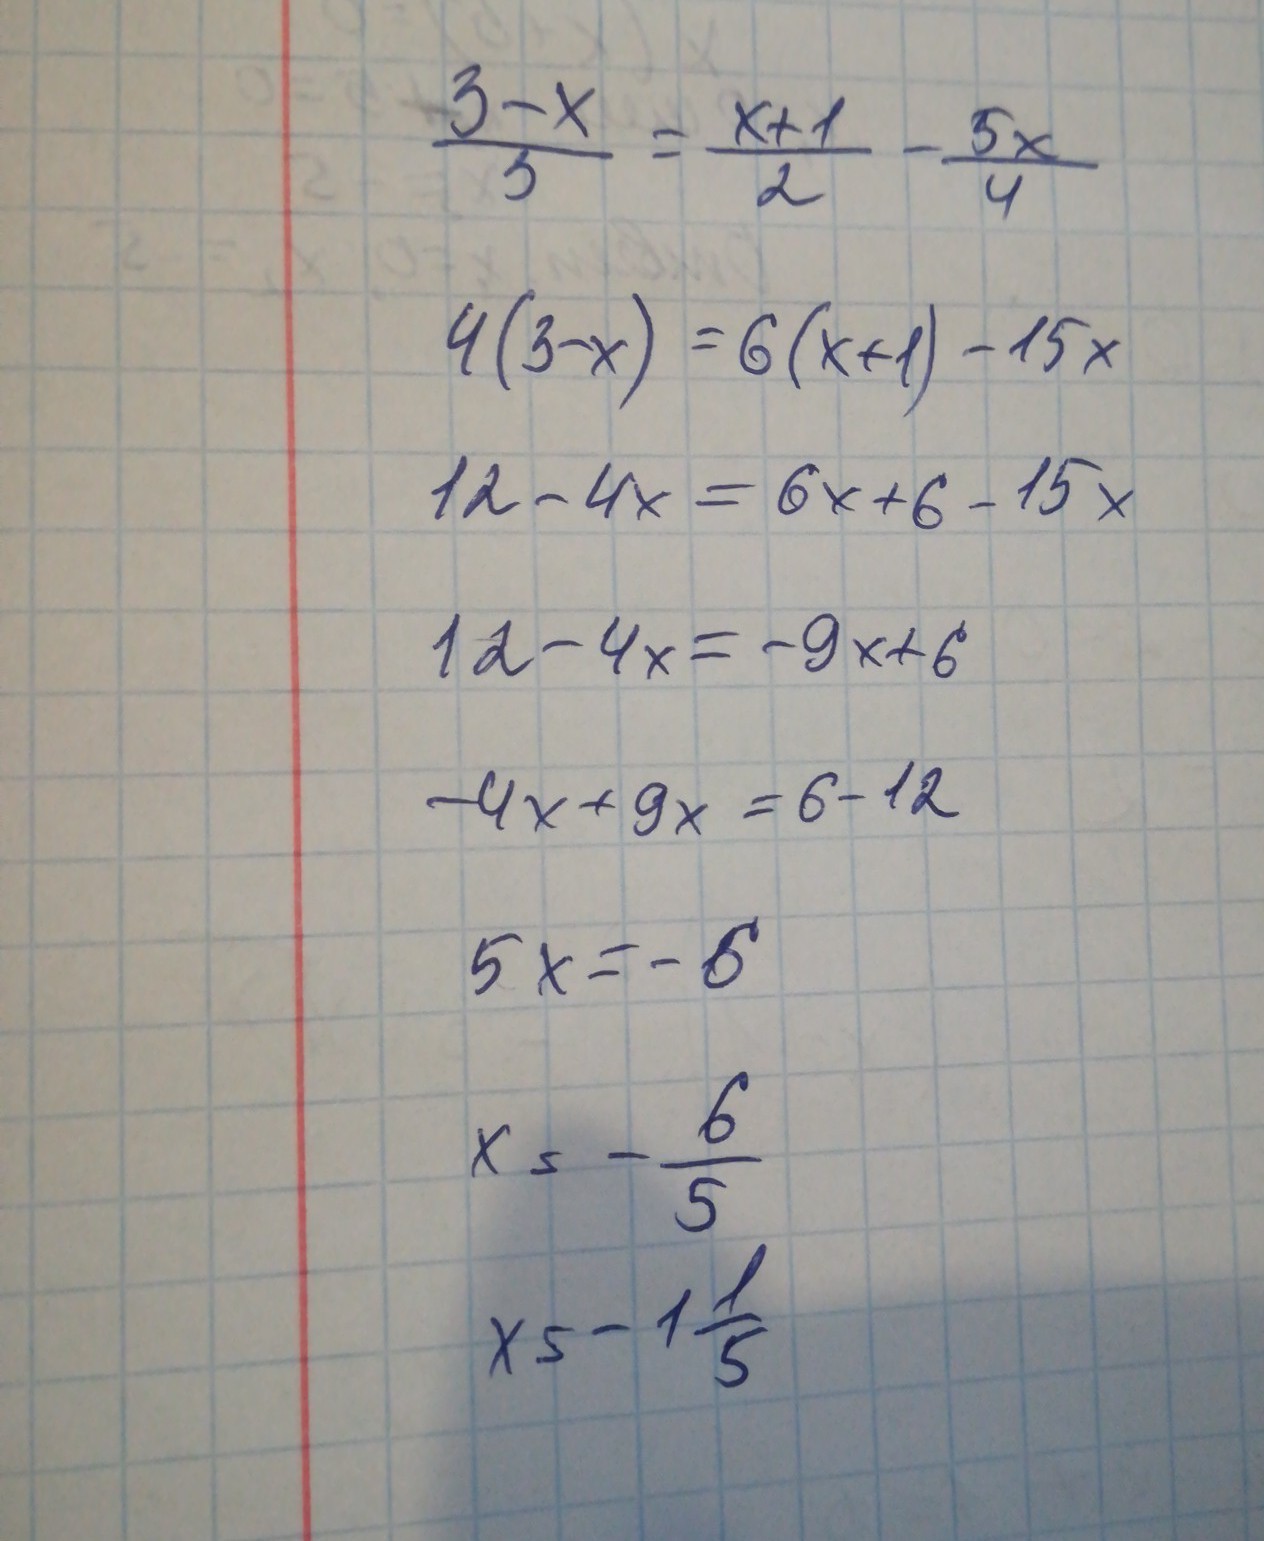 (3-x)/3 = (x+1)/2 - 5x/4
4(3-x) = 6(x+1) - 15x
12 - 4x = 6x + 6 - 15x
12 - 4x = -9x + 6
-4x + 9x = 6 - 12
5x = -6
x = - 6/5
x = - 1 1/5